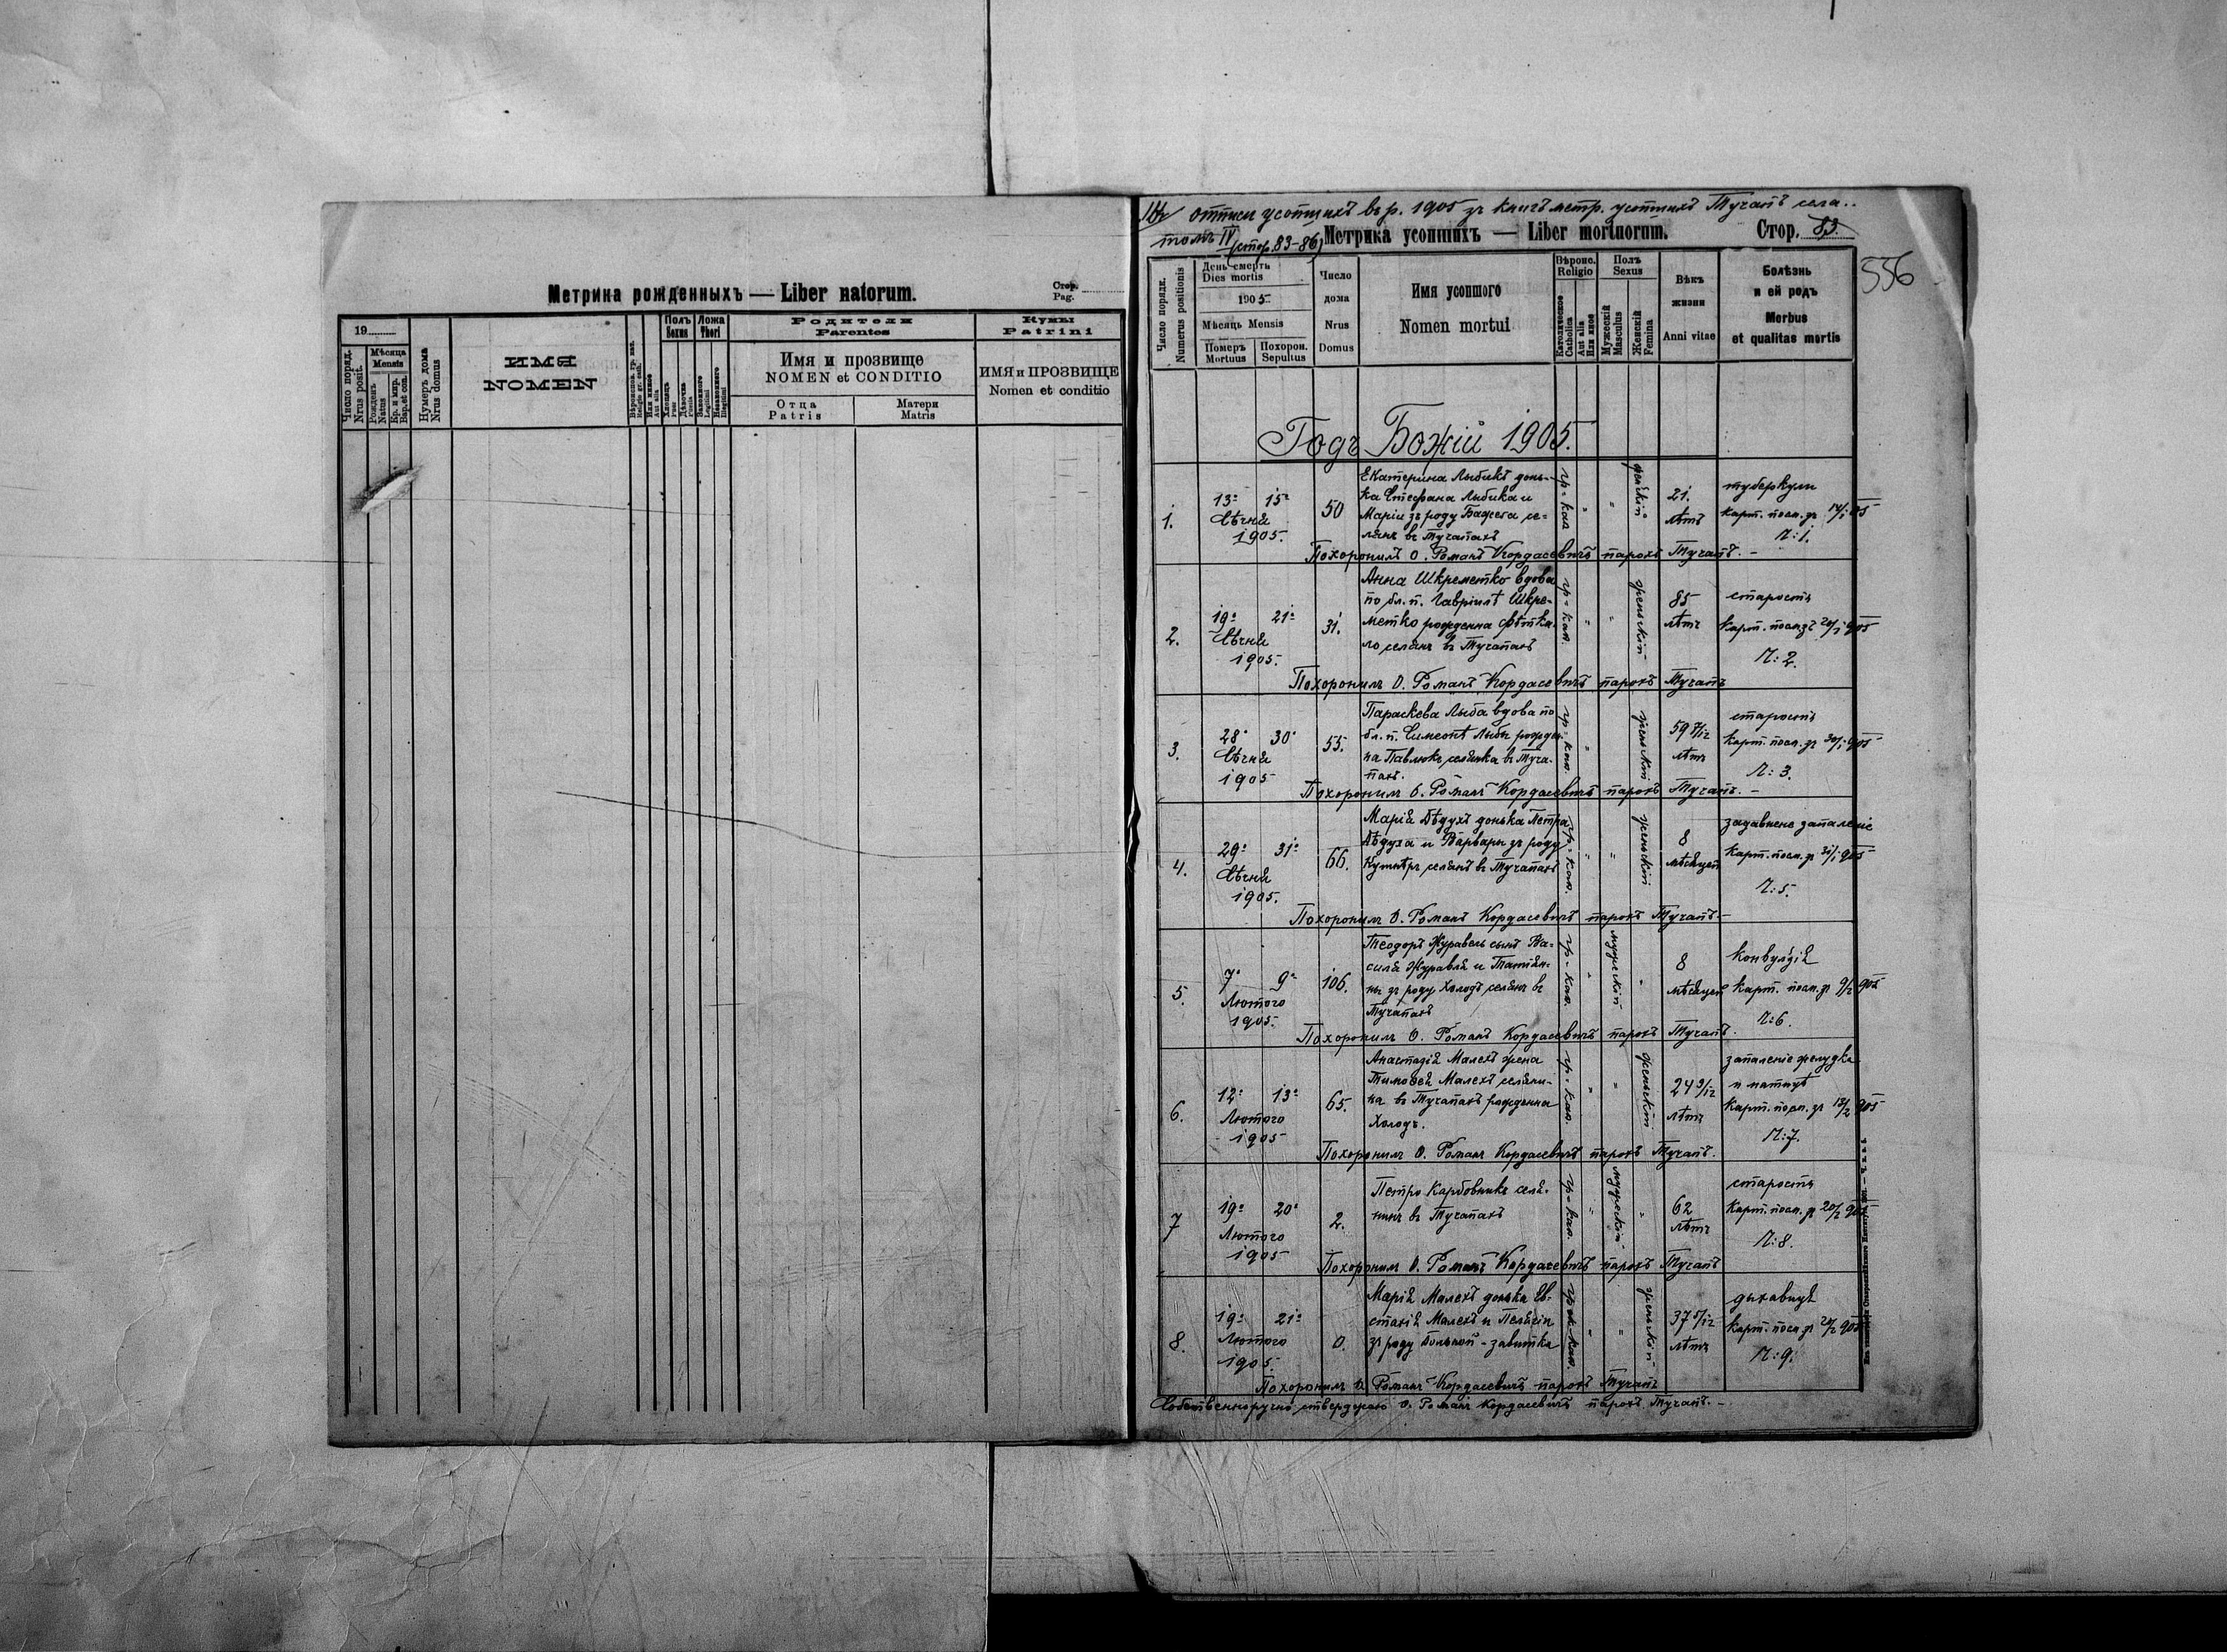 Метрика рожденныхъ — Liber natorum.
Стор.
Pag.
19
Число поряд.
Nrus posit.
Мѣсяца
Mensis
Рожденъ
Natus
Кр. и мир.
Bap. et con.
Нумеръ дома
Nrus domus
ИМЯ
NOMEN
Полъ
Sexus
Ложа
Thori
Родители
Parentes
Имя и прозвище
NOMEN et CONDITIO
Отца
Patris
Матери
Matris
Кумы
Patrini
ИМЯ и ПРОЗВИЩЕ
Nomen et conditio
отписи усопшихъ въ р. 1905 зъ книгъ метр. усопшихъ Тучапъ села
томъ IV (стор. 83-86)
Метрика усопшихъ — Liber mortuorum.
Стор. 83.
556
Число порядк.
Numerus positionis
День смерть
Dies mortis
1905
Мѣсяць Mensis
Померъ
Mortuus
Похорон.
Sepultus
Число
дома
Nrus
Domus
Имя усопшого
Nomen mortui
Вѣроис.
Religio
Католическое
Catholica
Или иное
Aut alia
Полъ
Sexus
Мужескій
Masculus
Женскій
Femina
Вѣкъ
жизни
Anni vitae
Болѣзнь
и ей родъ
Morbus
et qualitas mortis
Годъ Божій 1905.
1.
13. 15.
Сѣчня
1905.
50
Екатерина Лыбикъ донь-
ка Стефана Лыбика и
Маріи зъ роду Бафега се-
лянъ въ Тучапахъ
гр.-кат.
женскій
21.
лѣтъ
туберкули
Карт. посм. зъ 14/1 905
Л: 1.
Похоронилъ О. Романъ Кордасевичъ парохъ Тучапъ. -
2.
19. 21.
Сѣчня
1905.
31.
Анна Шкреметко вдова
по бл. п. Гавріилѣ Шкре-
метко рожденна
селянъ въ Тучапахъ
гр.-кат.
женьскій
85
лѣтъ
старость
Карт. посм. зъ 20/1 905
Л: 2.
Похоронилъ О. Романъ Кордасевичъ парохъ Тучапъ
3.
28. 30.
Сѣчня
1905
55.
Параскева Лыба вдова по
бл. п. Симеонѣ Лыбы рожден-
на Павлюкъ селянка въ Туча-
пахъ.
гр.-кат.
женьскій
59 7/12
лѣтъ
старость
Карт. посм. зъ 30/1 905
Л: 3.
Похоронилъ О. Романъ Кордасевичъ парохъ Тучапъ. -
4.
29. 31.
Сѣчня
1905.
66.
Марія Дѣдухъ донька Петра
Дѣдуха и Варвары зъ роду
Кушнѣръ селянъ въ Тучапахъ
гр.-кат.
женьскій
8
мѣсяцей
запаленіе
Карт. посм. зъ 31/1 905
Л: 5.
Похоронилъ О. Романъ Кордасевичъ парохъ Тучапъ -
5.
7. 9.
Лютого
1905.
106.
Теодоръ Журавель сынъ Ва-
силя Журавля и Татіян-
ны зъ роду Холодъ селянъ въ
Тучапахъ
гр.-кат.
мужескій
8
мѣсяцей
конвулзія
Карт. посм. зъ 9/2 905
Л: 6.
Похоронилъ О. Романъ Кордасевичъ парохъ Тучапъ.
6.
12. 13.
Лютого
1905
65.
Анастазія Малехъ жена
Тимофея Малехъ селяни-
на въ Тучапахъ рожденна
Холодъ.
гр.-кат.
женьскій
24 9/12
лѣтъ
запаленіе желудка
Карт. посм. зъ 13/2 905
Л: 7.
Похоронилъ О. Романъ Кордасевичъ парохъ Тучапъ.
7
19. 20.
Лютого
1905
2.
Петро Карбовникъ селя-
нинъ въ Тучапахъ
гр.-кат.
мужескій
62
лѣтъ
старость
Карт. посм. зъ 20/2 905
Л: 8.
Похоронилъ О. Романъ Кордасевичъ парохъ Тучапъ
8.
19. 21.
Лютого
1905.
0.
Марія Малехъ донька Ев-
стахія Малехъ и Пелягіи
зъ роду
гр.-кат.
женьскій
37 5/12
лѣтъ
дыхавиця
Карт. посм. зъ 20/2 905
Л: 9.
Похоронилъ О. Романъ Кордасевичъ парохъ Тучапъ
Собственноручно стверджаю О. Романъ Кордасевичъ парохъ Тучапъ. -